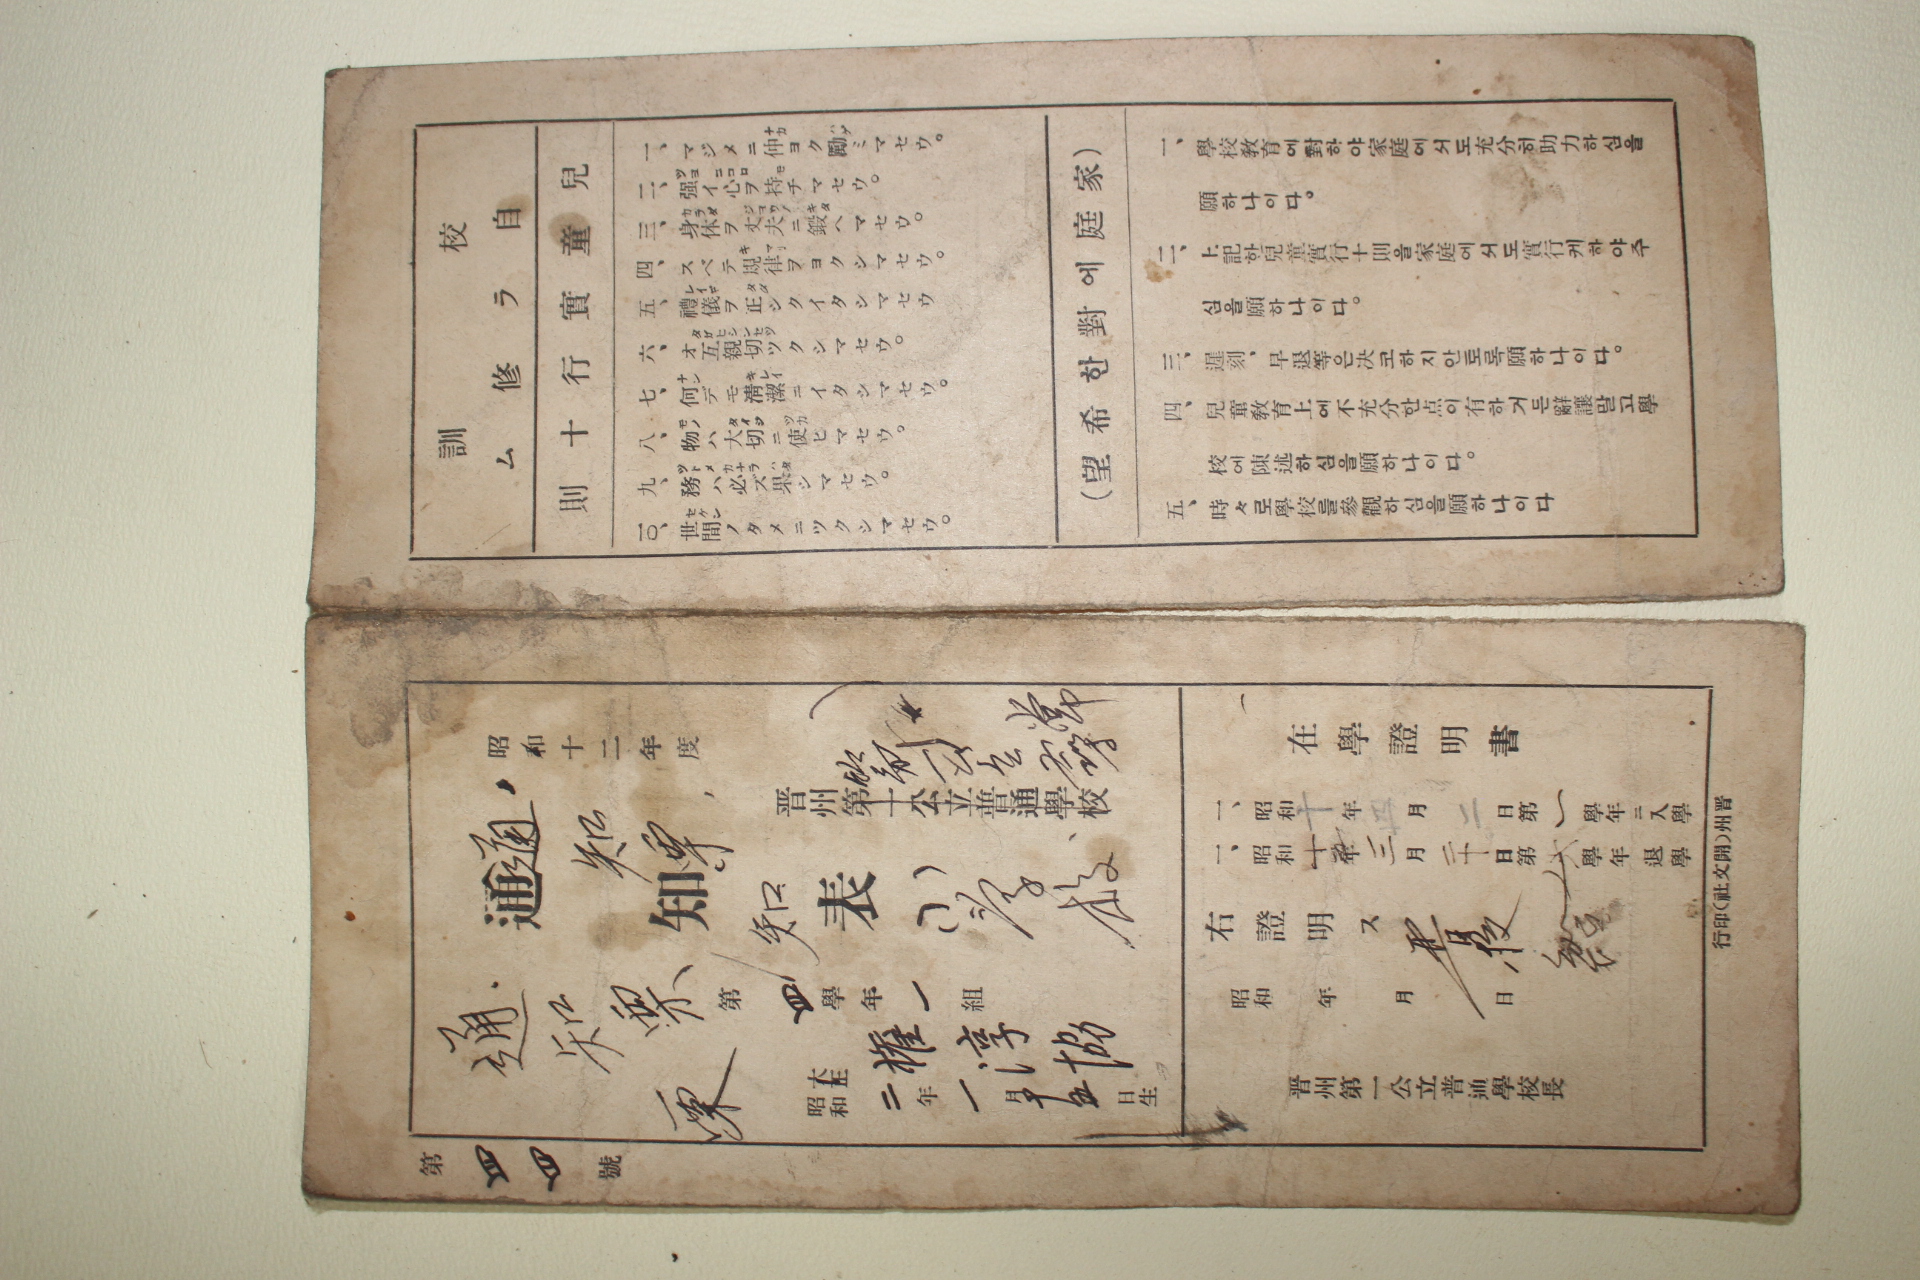 校訓
自ラ修ム
兒童實行十則
一、マジメニ仲ヨク勵ミマセウ。
ナカ ハゲ
二、强イ心ヲ持チマセウ。
ツヨ ココロ モ
三、身体ヲ丈夫ニ鍛ヘマセウ。
カラダ ジヨウブ キタ
四、スベテ規律ヲヨクシマセウ。
キマリ
五、禮儀ヲ正シクイタシマセウ
レイギ タダ
六、オ互親切ツクシマセウ。
タガヒシンセツ
七、何デモ淸潔ニイタシマセウ。
ナン キレイ
八、物ハ大切ニ使ヒマセウ。
モノ タイジ ツカ
九、務ハ必ズ果シマセウ。
ツトメ カナラ ハタ
一〇、世間ノタメニツクシマセウ。
セケン
(家庭에對한希望)
一、學校敎育에對하야家庭에서도充分히助力하심을
願하나이다。
二、上記한兒童實行十則을家庭에서도實行케하야주
심을願하나이다。
三、遲刻、早退等은決코하지안토록願하나이다。
四、兒童敎育上에不充分한点이有하거든辭讓말고學
校에陳述하심을願하나이다。
五、時々로學校를參觀하심을願하나이다
昭和十二年度
晋州第一公立普通學校
通知表
通知票
小學校
知
通知票
票
第四學年一組
權淳協
大正
昭和二年一月十五日生
第四四號
在學證明書
一、昭和十年四月二日第一學年ニ入學
一、昭和十五年三月二十日第六學年退學
右證明ス
昭和 年 月 日
晋州第一公立普通學校長
晋州(開文社)印行